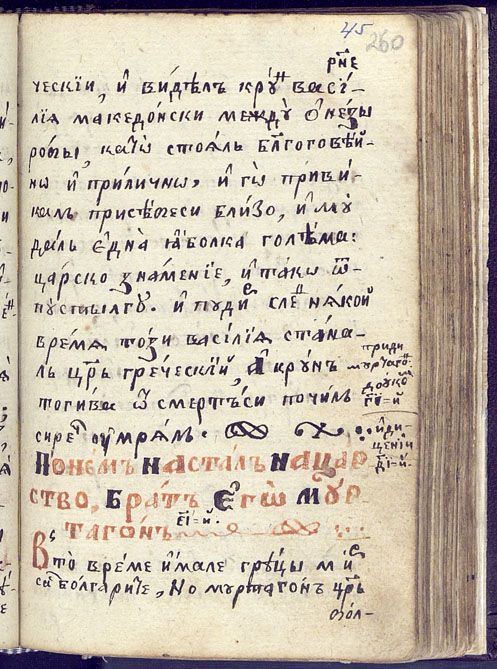 45
260
рⷭ҇не
ческїи, и҆ видѣлъ крⷩу҆ васї-
лїѧ македо́нски междꙋ̀ ѻ҆не́зы
ро́бы, като̀ стоѧлъ бл҃гоговѣ́й-
ны и҆ прили́чны, и҆ гѡ̀ приви́-
калъ при се́бе си бли́зо, и҆ мꙋ
далъ є҆дна̀ ꙗ҆болка голѣ́ма:
ца́рско зна́менїе, и҆ та́кѡ ѿ-
пꙋстилъ гꙋ. и҆
слеⷣ нѧ́кой
вре́мѧ то́зи васїлїѧ ста́на-
лъ цр҃ь гре́ческїй, а҆ крꙋ́нъ
тогива ѿ сме́рть си почи́лъ
сиречъ ᲂу҆мрѧлъ.
приди
И҆ди-
По не́мъ наста́лъ на цар-
ство, бра́тъ є҆гѡ̀ мꙋр-
таго́нъ
є҃і=й.
Въ то̀ вре́ме и҆мале гре́цы ми́сⷬ
съ бо́лгарите, но мꙋртаго́нъ цр҃ь
бол-